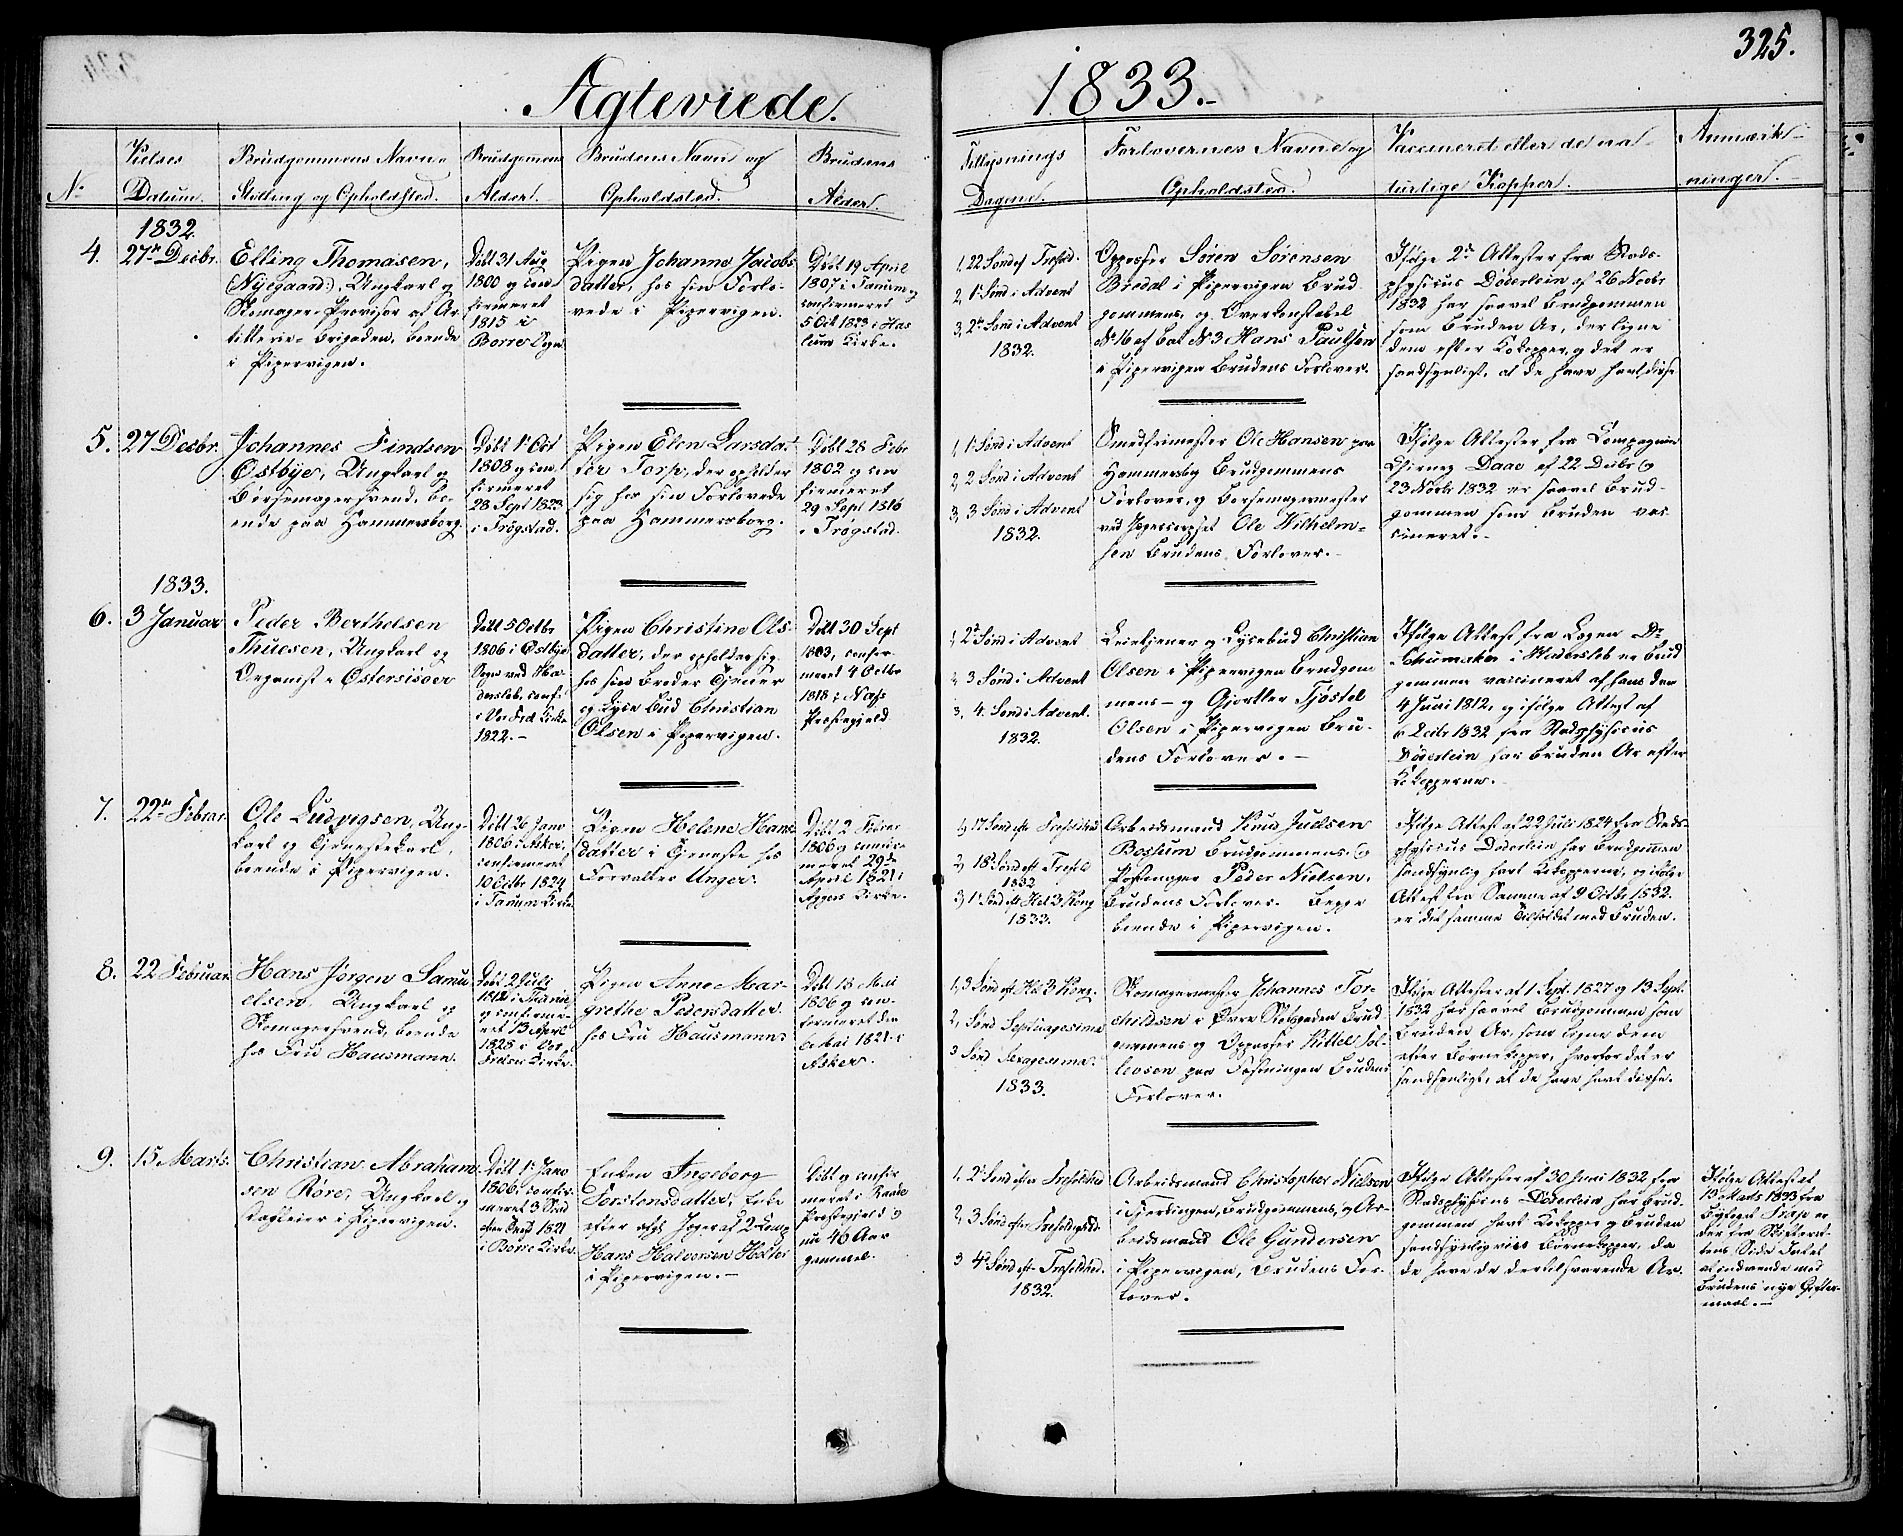 325.
Ægteviede. 1833.
No
Vielses Datum.
Brudgommens Navn, Stilling og Opholdsted.
Brudgomens Alder.
Brudens Navn og Opholdsted.
Brudens Alder.
Tillysnings Dagene.
Forlovernes Navne og Opholdsted.
Vaccineret eller de naturlige Kopper.
Anmærkninger.
1832.
4.
27n Decbr.
Elling Thomasen,
(Nyegaard), Ungkarl og
Skomager-Provisor af Ar
tillerie-Brigaden, boende
i Pipervigen.
Døbt 31 Aug
1800 og con
firmeret
1815 i
Borre Sogn
Pigen Johanne Jacobs
datter, hos sin Forlo-
vede i Pipervigen.
Døbt 19 April
1807 i Tanum og
confirmeret
5 Oct 1823 i Has
lum Kirke.
1, 22 Sønd ef Trefold.
2, 1n Sønd i Advent
3, 2n Sønd i Advent
1832.
Oppasser Søren Sørensen
Bredal i Pipervigen Brud
gommens, og Overkonstabel
No 16 af Bat No 3 Hans Paulsen
i Pipervigen Brudens Forlover.
Ifølge 2de Attester fra Stads-
physicus Døderlein af 26 Novbr
1832 har saavel Brudgommen
som Bruden Ar, der ligne
dem efter Kokopper, og det er
sandsynligt, at de have havt disse
5.
27 Decbr.
Johannes Findsen
Østbye, Ungkarl og
Børsemagersvend, bo-
ende paa Hammersborg
Døbt 1n Oct
1808 og con
firmeret
28 Sept 1823
i Trøgstad.
Pigen Elen Larsdat
ter Torp, der opholder
sig hos sin Forlovede
paa Hammersborg.
Døbt 28 Febr
1802 og con
firmeret
29 Sept 1816
i Trøgstad.
1, 1 Sønd i Advent
2, 2 Sønd i Advent
3, 3 Sønd i Advent
1832.
Smedsmester Ole Hansen paa
Hammersborg Brudgommens
Forlover, og Børsemagermester
ved Jægercorpset Ole Wilhelm-
sen Brudens Forlover.
Ifølge Attester fra Compagnie
Chirurg Daae af 22 Decbr og
23 Novbr 1832 er saavel Brud-
gommen som Bruden vac
cineret.
1833.
6.
3 Januar
Peder Berthelsen
Thuesen, Ungkarl og
Organist i Østersisøer
Døbt 5 Octbr
1806 i Østbye
Sogn ved Ha
dersleb, conf.
i Vor Frel Kirke
1822.
Pigen Christine Ols
datter, der opholder sig
hos sin Broder Tjener
og Lyse Bud Christian
Olsen i Pipervigen.
Døbt 30 Sept
1803, confir
meret 4 Octbr
1818 i Næs
Præstegjeld
1, 2n Sønd i Advent
2, 3 Sønd i Advent
3, 4. Sønd i Advent.
1832.
Leietjener og Lysebud Christian
Olsen i Pipervigen Brudgom
mens - og Gjørtler Tjøstel
Olsen i Pipervigen Bru-
dens Forlover.
Ifølge Attest fra Lægen Dr
Schumaker i Hadersleb er Brud
gommen vaccineret af ham den
4 Juni 1812, og ifølge Attest af
Decbr 1832 fra Stadsphysicus
Døderlein har Bruden Ar efter
Kokopperne.
7.
22n Februar.
Ole Ludvigsen, Ung-
karl og Tjenestekarl,
boende i Pipervigen.
Døbt 26 Janv
1806 i Asker,
confirmeret
10 Octbr 1824
i Tanum Kirke
Pigen Helene Hans
datter i Tjeneste hos
Forvalter Unger.
Døbt 2 Februar
1806 og confir
meret 29de
April 1821 i
Aggers Kirke.
1, 17 Sønd eft Trefoldhed
2, 18n Sønd eft Trefold
1832
3, 1n Sønd eft Hel 3 Kong
1833.
Arbeidsmand Knud Juelsen
Bossum Brudgommens, og
Peder Nielsen,
Brudens Forlover. Begge
boende i Pipervigen.
Ifølge Attest af 22 Juli 1824 fra Stads-
physicus Døderlein har Brudgommen
sandsynlig havt Kokopperne, og ifølge
Attest fra Samme af 9 Octbr 1832.
er det samme Tilfældet med Bruden.
8.
22 Februar.
Hans Jørgen Samu
elsen Ungkarl og
Skomagersvend, boende
hos Fru Hausmann.
Døbt 2 Juli
og confirme-
ret 13 April
1828 i Vor
Frelser Kirke.
Pigen Anne Mar-
grethe Pedersdatter
hos Fru Hausmann.
Døbt 18 Mai
1806 og con-
firmeret den
Mai 1821 i
Asker.
1, 3 Sønd eft Hel 3 Kong.
2, Sønd Septuagesima
3 Sønd Sexagesima.
1833.
Skomagermester Johannes Tor-
childsen i Øvre Slotsgaden Brud
gommens og Oppasser Kittel Tol-
levsen paa Fæstningen Brudens
Forlover.
Ifølge Attester af 1 Sept. 1827 og 13 Sept.
1832 har saavel Brudgommen som
Bruden Ar, som ligne dem
efter Børnekopper, hvorfor det er
sandsynligt, at de have havt disse.
9.
15 Marts.
Christian Abraham
sen Røre, Ungkarl og
i Pipervigen.
Døbt 1n Janv
1806, confir-
meret 3 Sønd
efter Paask 1821
i Borre Kirke.
Enken Ingeborg
Torstensdatter, Enke
efter afgl. Jæger af 2 Comp
Hans Halvorsen Holter
i Pipervigen.
Døbt og confir
meret i Raade
Præstegjeld og
nu 46 Aar
gammel.
1. 2n Sønd efter Trefoldhed
2, 3 Sønd efter Trefoldighed.
3 4de Sønd eft Trefoldhed.
1832.
Arbeidsmand Christopher Nielsen
i Fjerdingen, Brudgommens, og Ar-
beidsmand Ole Gundersen
i Pipervigen, Brudens For-
lover.
Ifølge Attester af 30 Juni 1832 fra
Stadsphysicus Døderlein har Brud
gommen havt Kokopper og Bruden
sandsynligviis Børnekopper, da
de have de dertil svarende Ar.
Ifølge Attest af
13 Marts 1833 fra
Byfoged Thrap er
der fra Skifteret-
tens Side Intet
at indvende mod
Brudens nye Gifter-
maal.